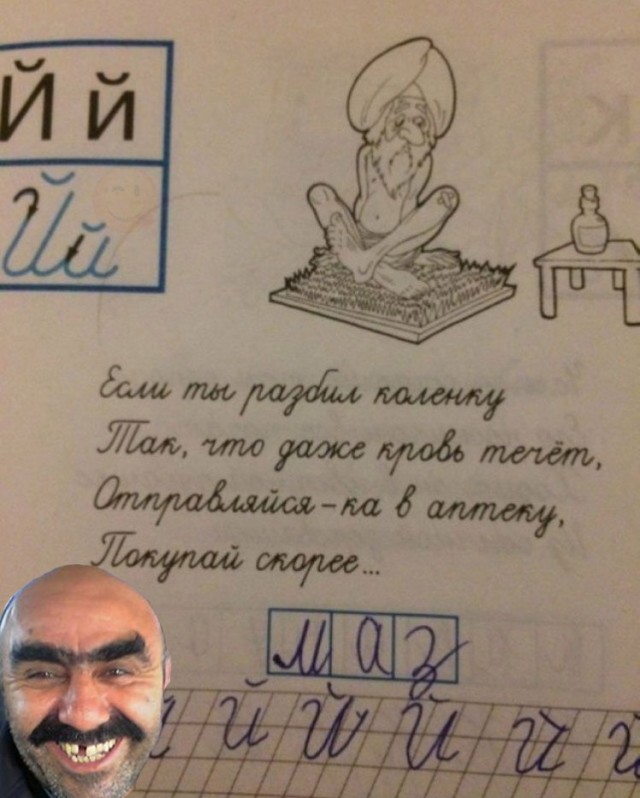 Й й
К
Й й
Если ты разбил коленку
Так, что даже кровь течёт,
Отправляйся-ка в аптеку,
Покупай скорее...
маз
й Й Й й